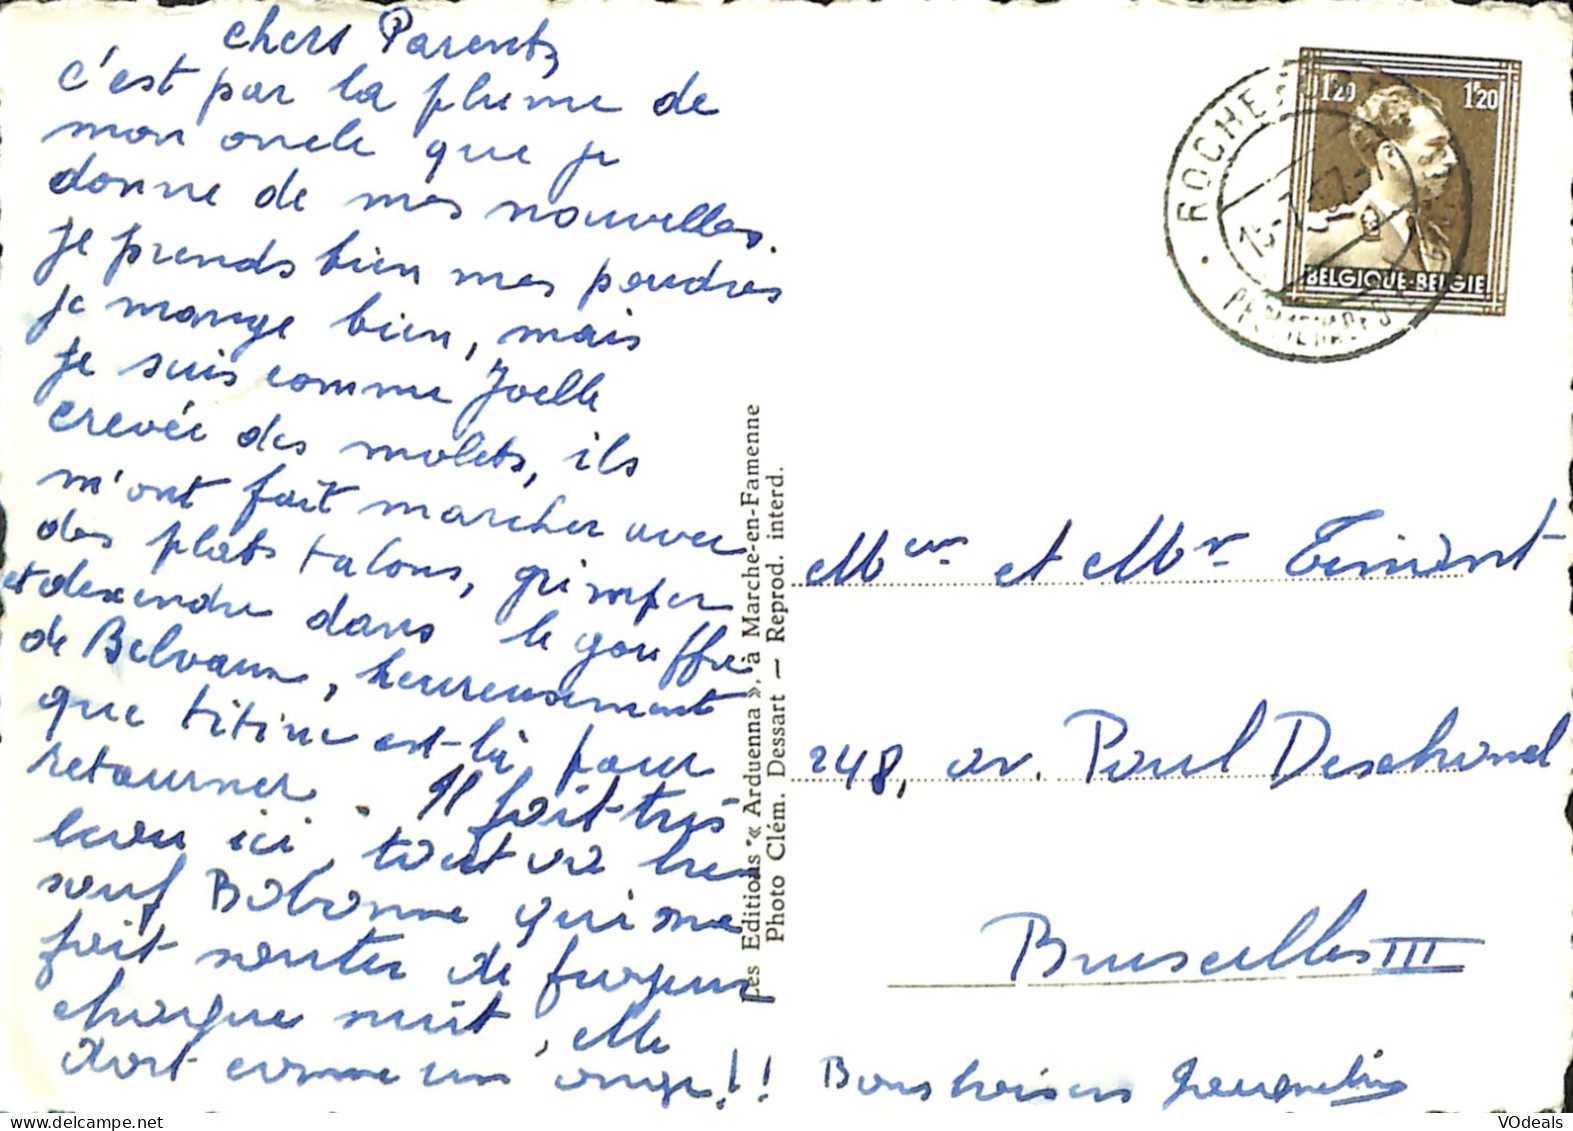 chers Parents
c'est par la plume de
mon oncle que je
donne de mes nouvelles.
je prends bien mes poudres
je mange bien, mais
je suis comme Joelle
crevée des molets, ils
m'ont fait marcher avec
des plats talons, grimper
et descendre dans le gouffre
de Belvaux, heureusement
que titine est là pour
retourner. Il fait très
beau ici, tout va bien
sauf Bobonne qui me
fait sauter de frayeur
chaque nuit, elle
dort comme un ange!!
Les Editions « Arduenna », à Marche-en-Famenne
Photo Clém. Dessart — Reprod. interd.
ROCHE
PROMENADES
1F20 1F20
BELGIQUE-BELGIE
Mme et Mr
248, av. Paul Deschanel
Bruxelles III
Bons baisers Jacqueline
www.delcampe.net
VOdeals